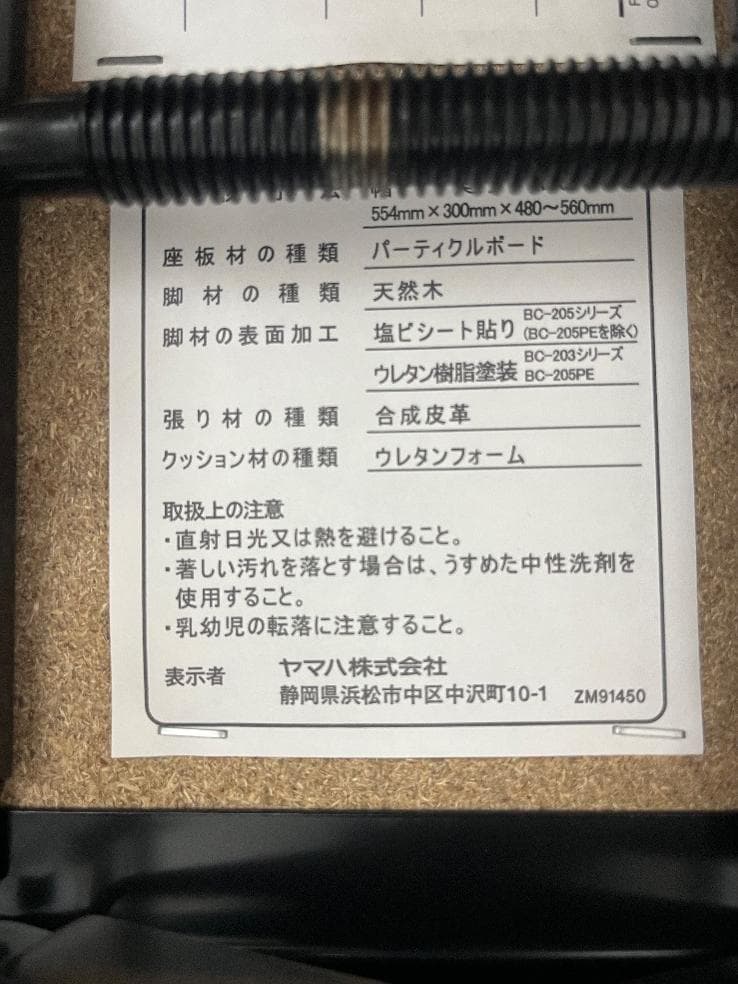 554mm×300mm×480〜560mm
座板材の種類 パーティクルボード
脚材の種類 天然木
脚材の表面加工 塩ビシート貼り BC-205シリーズ (BC-205PEを除く)
ウレタン樹脂塗装 BC-203シリーズ BC-205PE
張り材の種類 合成皮革
クッション材の種類 ウレタンフォーム
取扱上の注意
・直射日光又は熱を避けること。
・著しい汚れを落とす場合は、うすめた中性洗剤を
使用すること。
・乳幼児の転落に注意すること。
表示者 ヤマハ株式会社
静岡県浜松市中区中沢町10-1 ZM91450